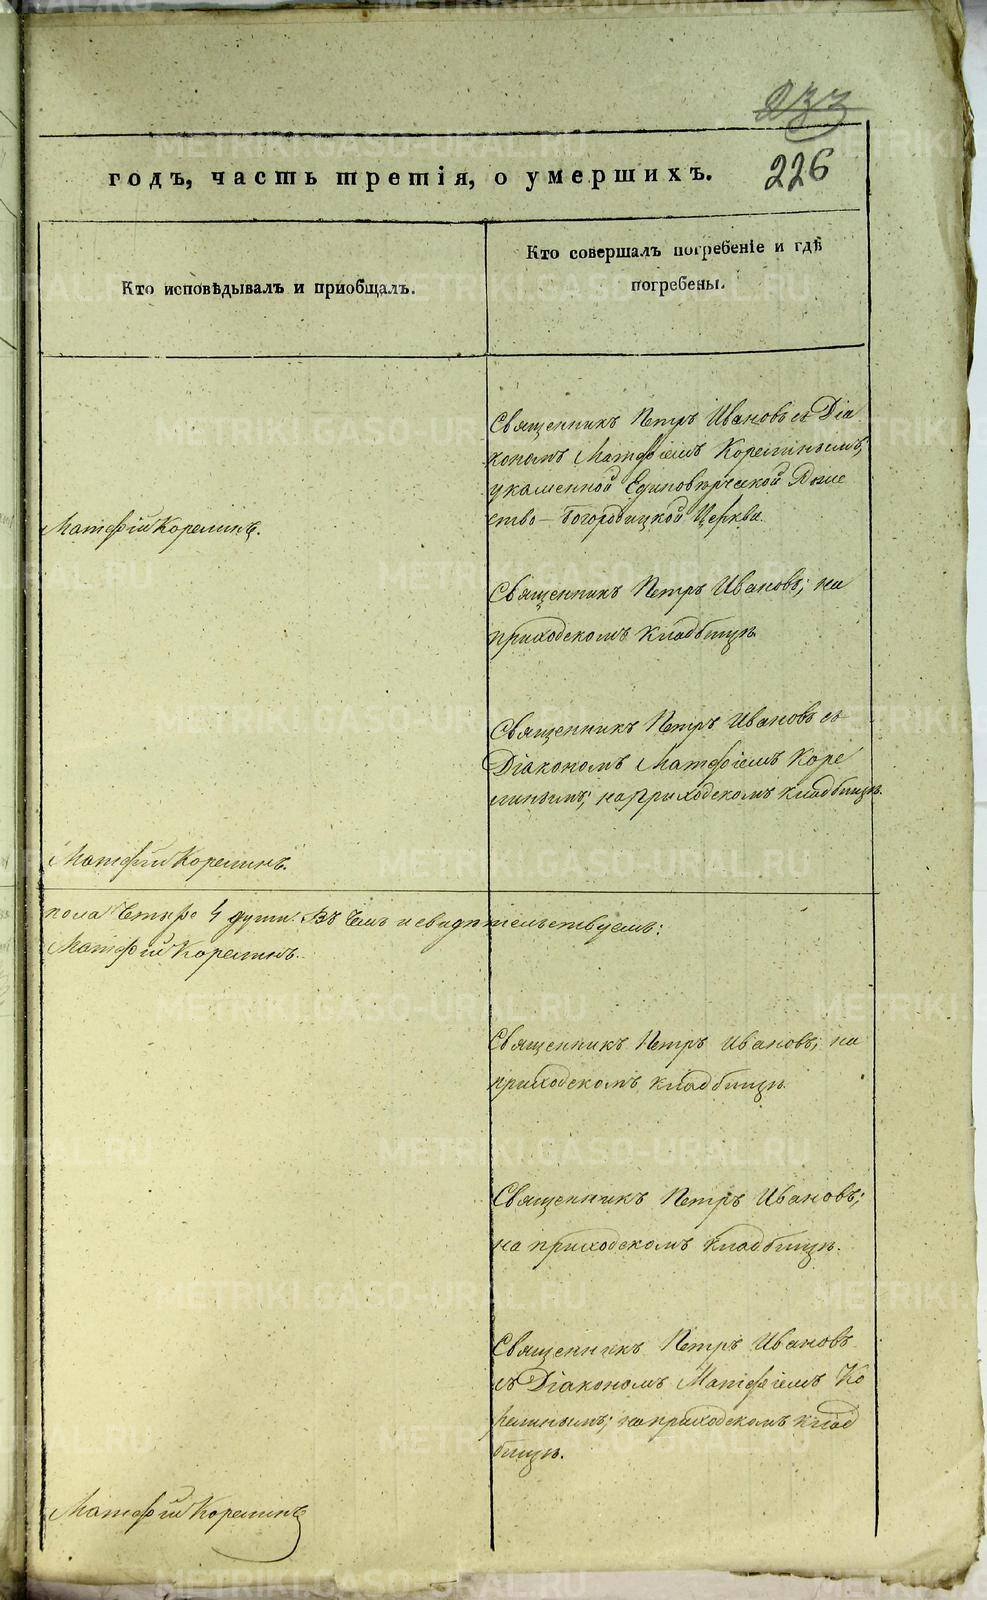 233
226
годъ, часть третія, о умершихъ.
Кто исповѣдывалъ и пріобщалъ.
Кто совершалъ погребеніе и гдѣ
погребены.
Священникъ Петръ Ивановъ съ Діа
кономъ Матфіемъ Корелинымъ;
у каменной Единовѣрческой Рожде
ство-Богородицкой Церкви.
Матфій Корелинъ.
Священникъ Петръ Ивановъ; на
приходскомъ кладбищѣ
Священникъ Петръ Ивановъ съ
Діакономъ Матфіемъ Коре
линымъ; на приходскомъ кладбищѣ.
Матфій Корелинъ.
пола четыре 4 души. Въ чемъ и свидѣтельствуемъ:
Матфій Корелинъ.
Священникъ Петръ Ивановъ; на
приходскомъ кладбищѣ
Священникъ Петръ Ивановъ;
на приходскомъ кладбищѣ.
Священникъ Петръ Ивановъ
съ Діакономъ Матфіемъ Ко
релинымъ; на приходскомъ клад
бищѣ.
Матфій Корелинъ
METRIKI.GASO-URAL.RU